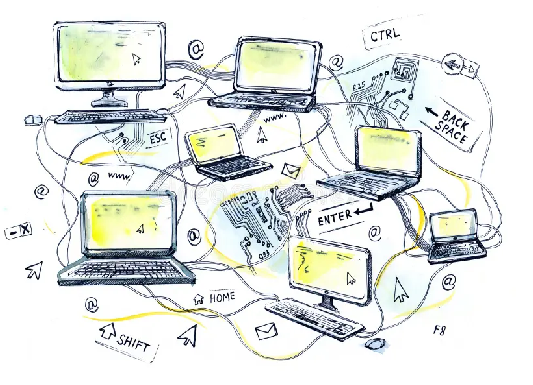 CTRL
@
@
ESC
www.
BACK
SPACE
www.
@
@
@
ENTER
@
@
HOME
@
SHIFT
F8